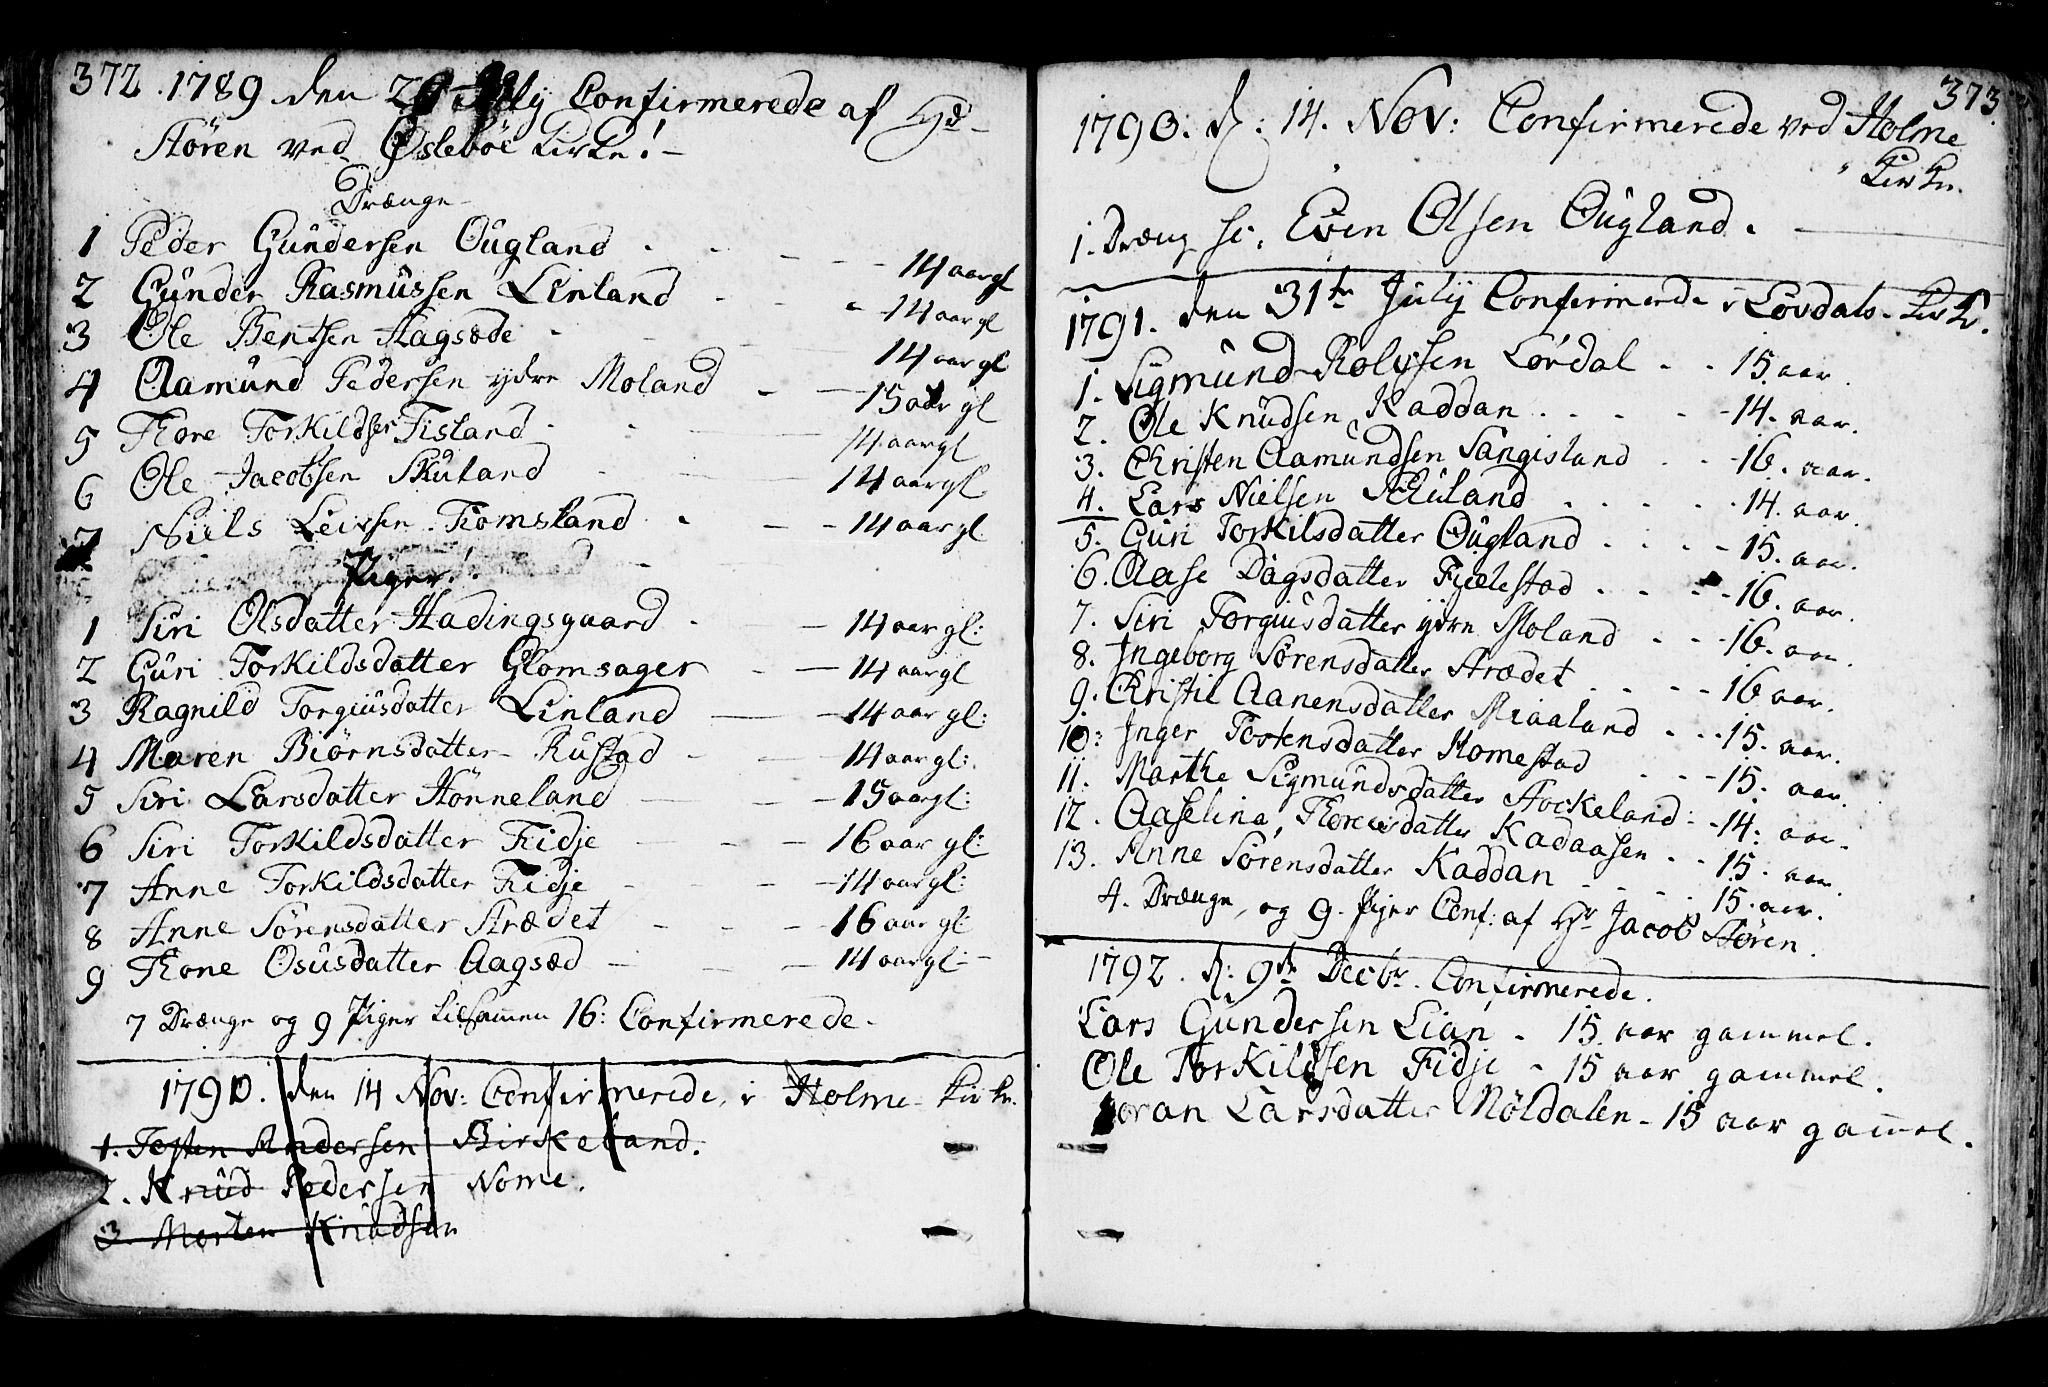 372. 1789 den 26 July Confirmerede af Hr
Stören ved Øsleböe Kirke!
Drænge
1 Peder Gundersen Ougland - 14 aar gl
2 Gunder Rasmussen Linland - 14 aar gl
3 Ole Bentsen Hagsöde - 14 aar gl
4 Aamund Pedersen ydre Moland - 15 aar gl
5 Thore Torkildsen Fisland - 14 aar gl
6 Ole Jacobsen Skuland - 14 aar gl
7 Niels Leifsen Tromsland - 14 aar gl
Piger!
1 Siri Olsdatter Hadingsgaard - 14 aar gl:
2 Guri Torkildsdatter Glomsager - 14 aar gl
3 Ragnild Torgiusdatter Linland - 14 aar gl:
4 Maren Biörnsdatter Rustad - 14 aar gl:
5 Siri Larsdatter Hönneland - 15 aar gl:
6 Siri Torkildsdatter Fidje - 16 aar gl:
7 Anne Torkildsdatter Fidje - 14 aar gl:
8 Anne Sörensdatter Strædet - 16 aar gl
9 Thone Osusdatter Aagsæd - 14 aar gl:
7 Drænge og 9 Piger tilsammen 16: Confirmerede.
1790. den 14 Nov: Confirmerede i Holme Kirke.
1. Testen Andersen Birkeland.
2. Knud Pedersen Nome.
3. Morten Knudsen
373.
1790. d: 14. Nov: Confirmerede ved Holme
Kirke.
1. Dræng sc. Even Olsen Ougland.
1791. den 31te July Confirmerede i Lövdals Kirke.
1. Sigmund Rolvsen Lövdal - 15 aar.
2. Ole Knudsen Kaddan - 14. aar.
3. Christen Aamundsen Sangisland - 16. aar.
4. Lars Nielsen Skuland - 14. aar.
5. Guri Torkilsdatter Ougland - 15. aar.
6. Aase Dagsdatter Fjelestad - 16. aar.
7. Siri Torgiusdatter ydre Moland - 16. aar.
8. Ingeborg Sörensdatter Strædet - 16 aar.
9. Christil Aanensdatter Miaaland - 15. aar.
10: Inger Tostensdatter Homestad - 15. aar.
11. Marthe Sigmundsdatter Stockeland: - 14. aar.
12. Aaselina Thoresdatter Kadaasen - 15. aar.
13. Anne Sörensdatter Kaddan - 15. aar.
4. Drænge, og 9. Piger Conf: af Hr Jacob Stören.
1792. d: 9de Decbr. Confirmerede.
Lars Gundersen Lian - 15. aar gammel.
Ole Torkildsen Fidje - 15 aar gammel.
Joran Larsdatter Möldalen - 15 aar gam̄el.